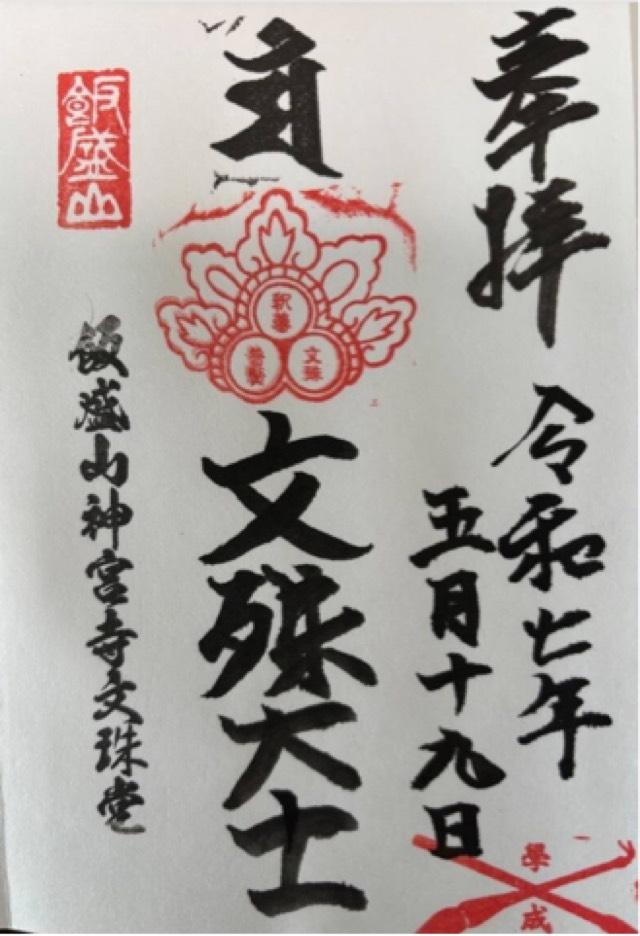 奉拝
令和七年
五月十九日
文殊大士
釈尊
文殊
普賢
飯盛山
飯盛山神宮寺文珠堂
學
成